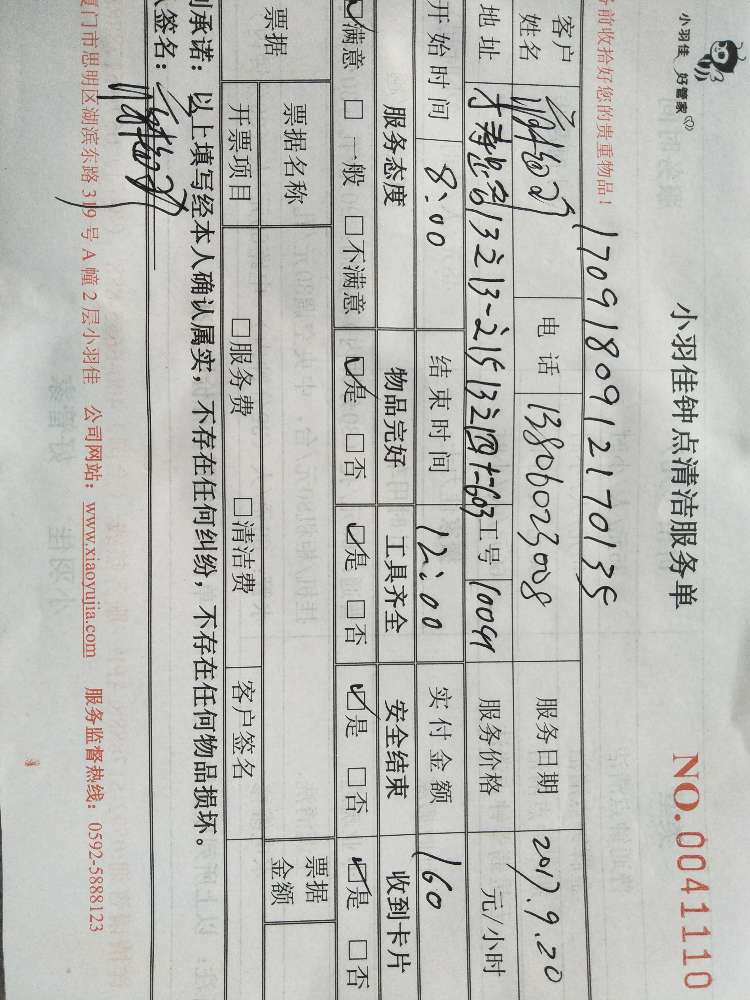 小羽佳 好管家
小羽佳钟点清洁服务单
NO.0041110
前收拾好您的贵重物品!
1709180912170135
客户姓名 电话 13806023008 服务日期 2017.9.20
地址 工号 10091 服务价格 元/小时
开始时间 8:00 结束时间 12:00 实付金额 160
服务态度 物品完好 工具齐全 安全结束 收到卡片
满意 □一般 □不满意 ☑是 □否 ☑是 □否 ☑是 □否 ☑是 □否
票据 票据名称 票据金额
开票项目 □服务费 □清洁费 客户签名
承诺:以上填写经本人确认属实,不存在任何纠纷,不存在任何物品损坏。
签名:
厦门市思明区湖滨东路319号A幢2层小羽佳 公司网站:www.xiaoyujia.com 服务监督热线:0592-5888123